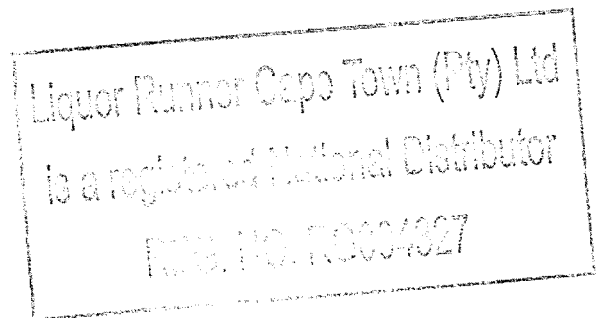 Liquor Runner Cape Town (Pty) Ltd
is a registered National Distributor
NO.